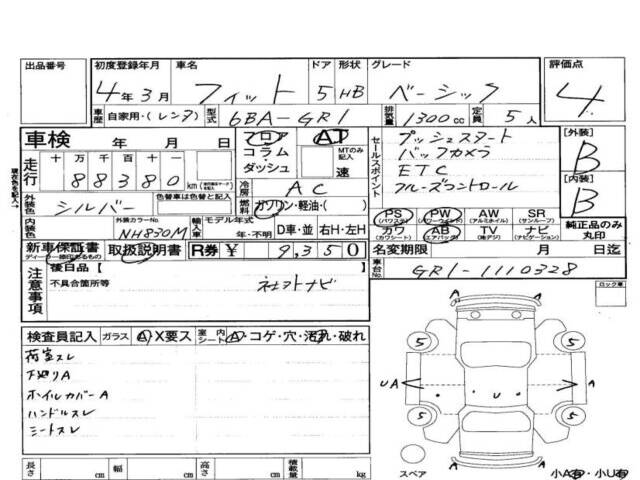 出品番号 初度登録年月 車名 ドア 形状 グレード 評価点
4年3月 フィット 5 HB ベーシック 4
車歴 自家用・(レンタ) 型式 6BA-GR1 排気量 1300cc 定員 5人
車検 年 月 日 フロア AT セールスポイント プッシュスタート [外装]
走行 十 万 千 百 十 km コラム MTのみ記入 バックカメラ B
88380 ダッシュ 速 ETC [内装]
現在色を記入→ 外装色 シルバー 色替車は色替と記入 冷房 AC クルーズコントロール B
燃料 ガソリン・軽油・( )
内装色 外装カラーNo. NH830M 輸入車 モデル年式 年・不明 D車・並 右H・左H
PS (パワステ) PW (パワーウィンド) AW (アルミホイル) SR (サンルーフ) 純正品のみ丸印
カワ (カワシート) AB (エアバック) TV (地デジ) ナビ (ナビゲーション)
新車保証書 ディーラー捺印あるもの 取扱説明書 R券 ¥ 9,350 名変期限 月 日迄
注意事項 後日品 [ ] 車台No. GR1-1110328
不具合箇所等 社外ナビ ロック車
検査員記入 ガラス A・X要ス 室内シート A・コゲ・穴・汚れ・破れ
荷室スレ
下廻りA
ホイルカバーA
ハンドルスレ
シートスレ
A A
5 5
UA A
U
5 5
A A
長さ cm 幅 cm 高さ cm 積載量 kg スペア 小A有・小U有